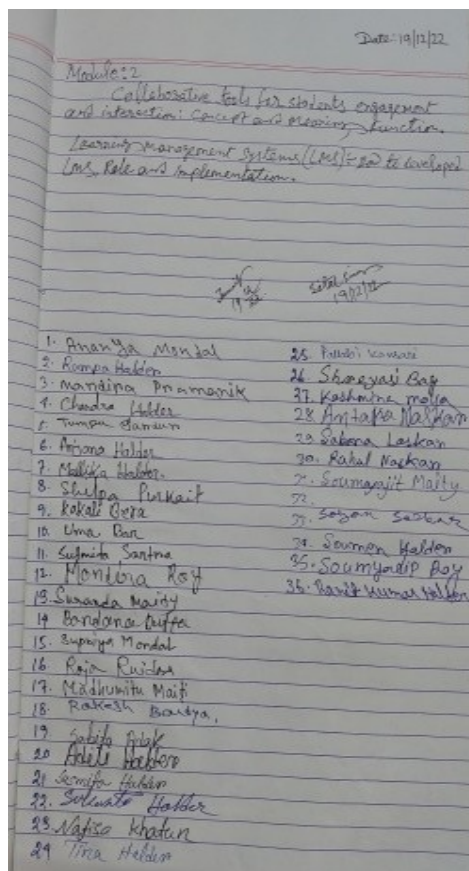 Date: 19/12/22
Module: 2
Collaborative tools for students engagement
and interaction: Concept and meaning, function.
Learning Management Systems (LMS)= to developed
LMS, Role and implementation.
19/12/22
1. Ananya Mondal
2. Rampa Halder
3. Mandira Pramanik
4. Chandra Halder
5. Tumpa
6. Halder
7. Mallika Halder
8. Shilpa Purkait
9. Kakali Bera
10. Uma Bar
11. Susmita Santra
12. Mondira Roy
13. Sunanda Maity
14 Bandana
15. Supriya Mondal
16 Raja Ruidas
17. Madhumita Maiti
18. Rakesh Baidya.
19. Sabita
20 Aditi Halder
21 Halder
22. Halder
23. Nafisa Khatun
24 Tina Halder
25.
26. Shreyasi Bag
27. Kashmina molla
28 Naskar
29. Sabona Laskar
30. Rahul Naskar
Soumyajit Maity
32.
Sarkar
34. Soumen Halder
35. Soumyadip Roy
36. Kumar Halder